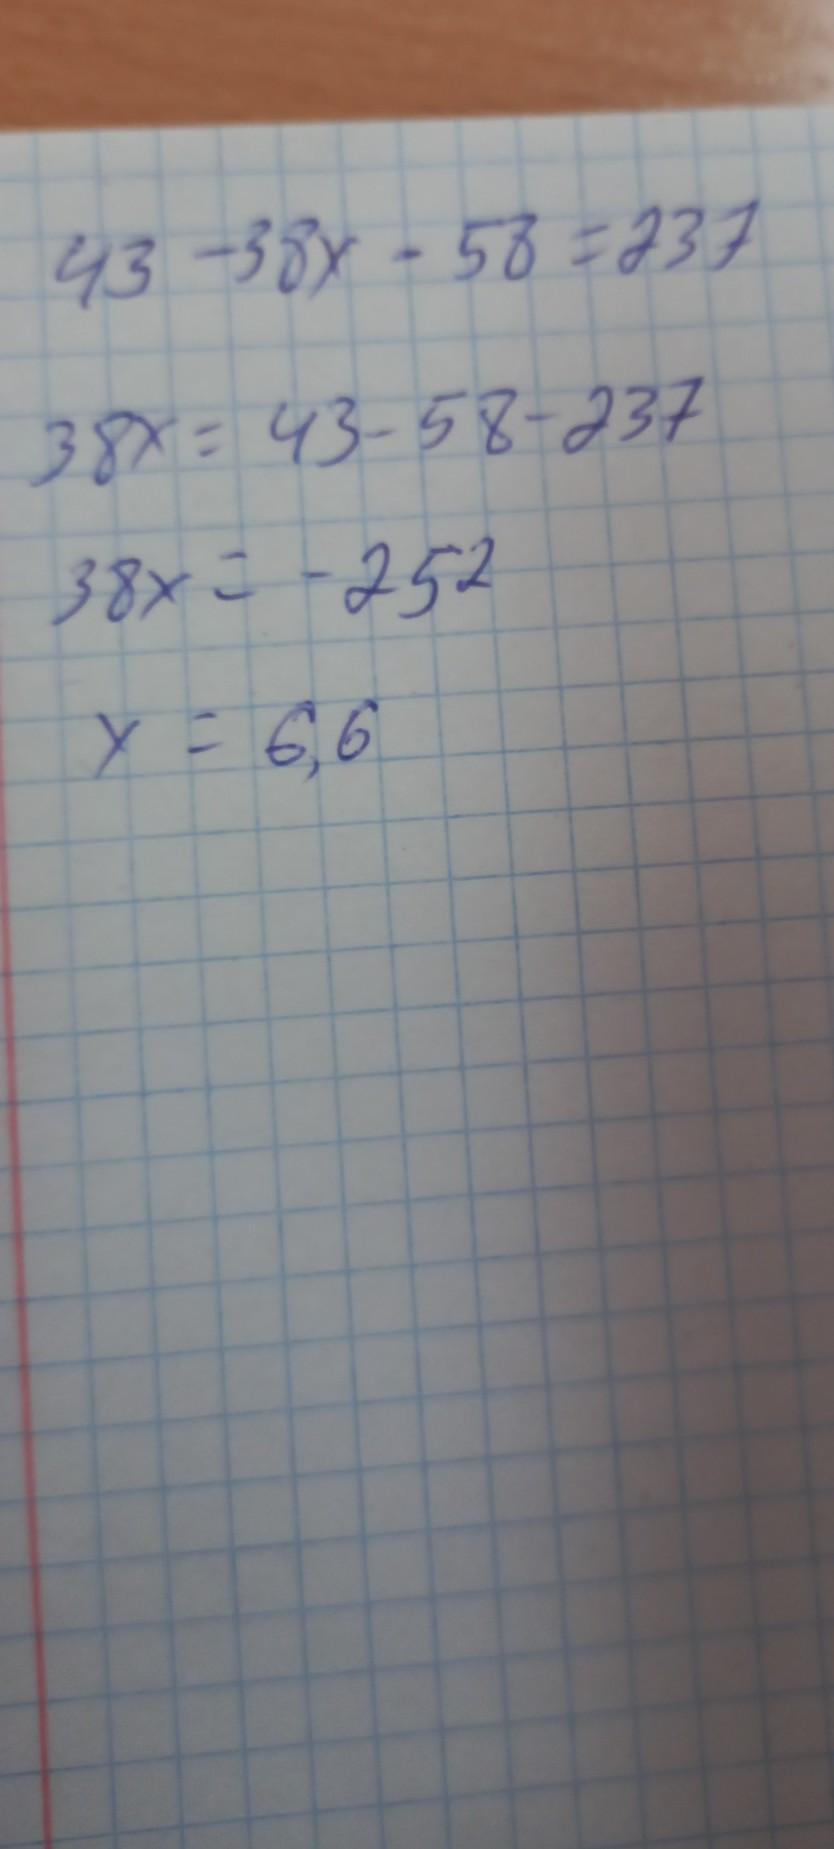 43 - 38x - 58 = 237
38x = 43 - 58 - 237
38x = - 252
x = 6,6